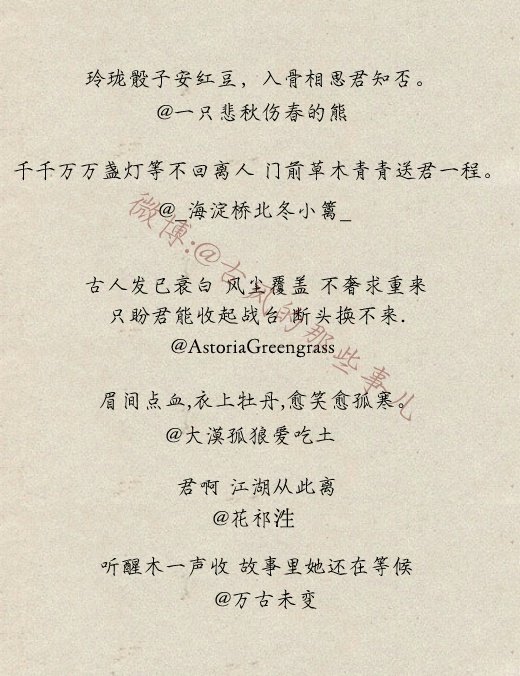 玲珑骰子安红豆，入骨相思君知否。
@一只悲秋伤春的熊
千千万万盏灯等不回离人 门前草木青青送君一程。
@_海淀桥北冬小篱_
古人发已衰白 风尘覆盖 不奢求重来
只盼君能收起战台 断头换不来.
@AstoriaGreengrass
眉间点血,衣上牡丹,愈笑愈孤寒。
@大漠孤狼爱吃土
君啊 江湖从此离
@花祁泩
听醒木一声收 故事里她还在等候
@万古未变
微博:@古风的那些事儿